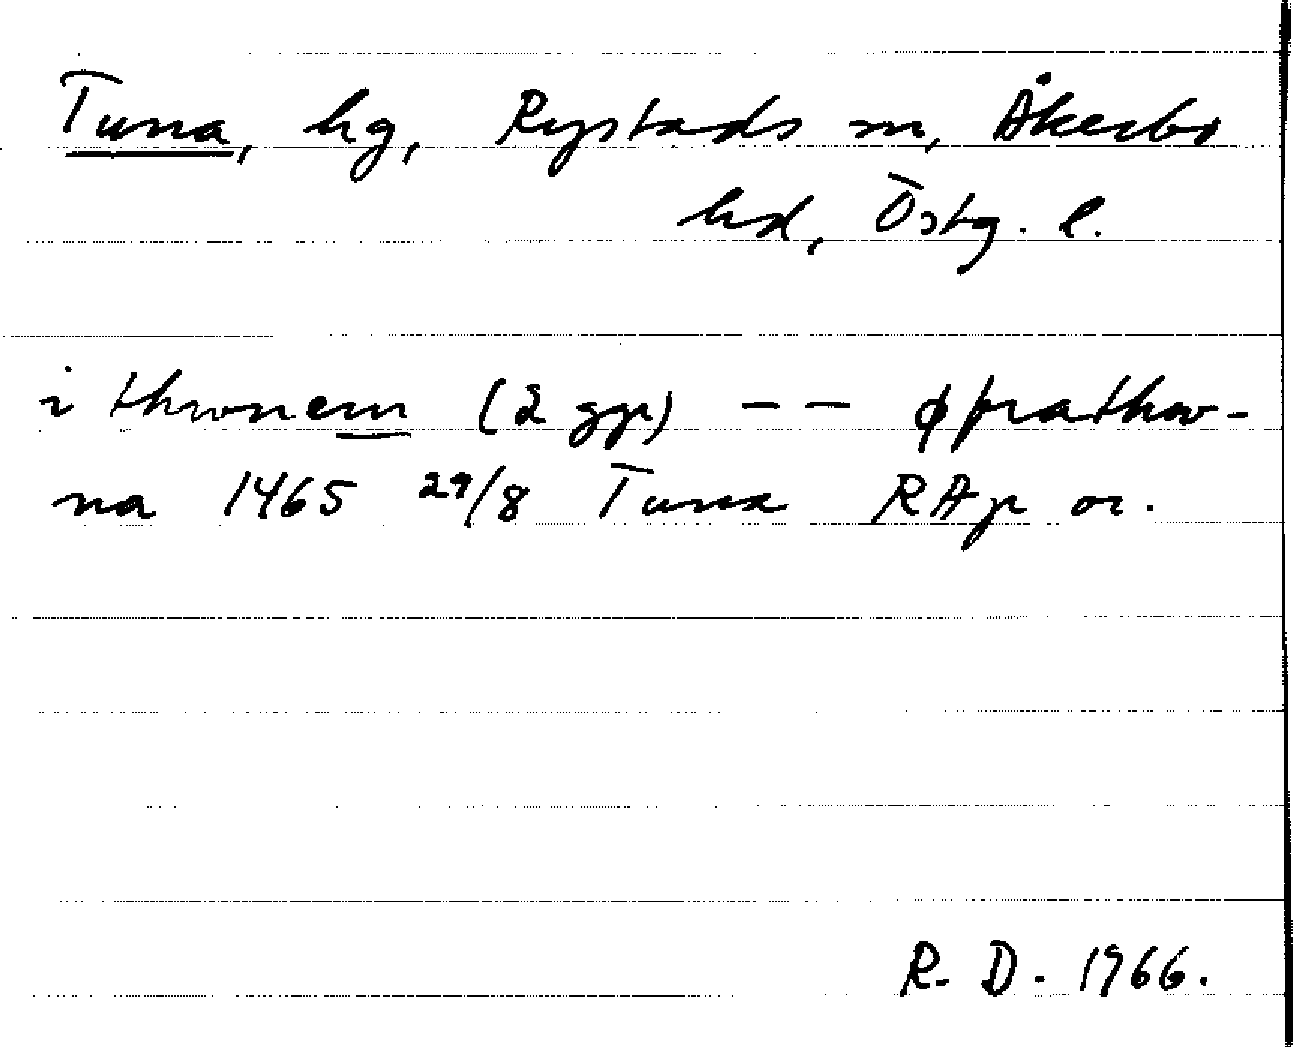 Tuna, hg, Rystads sn, Åkerbo
hd, Östg. l.
i thwnem (2 ggr) -- thw-
na 1465 29/8 Tuna RAp or.
R. D. 1966.